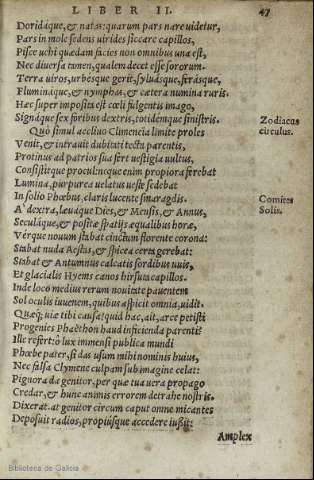 LIBER II.
47
Doridáque, & natas: quarum pars nare uidetur,
Pars in mole sedens uirides siccare capillos,
Pisce uehi quædam facies non omnibus una est,
Nec diuersa tamen, qualem decet esse sororum.
Terra uiros, urbésque gerit, syluásque, ferásque,
Flumináque, & nymphas, & cætera numina ruris.
Hæc super imposita est cœli fulgentis imago,
Signáque sex foribus dextris, totidémque sinistris.
Zodiacus
circulus.
Quò simul accliuo Clymeneia limite proles
Venit, & intrauit dubitati tecta parentis,
Protinus ad patrios sua fert uestigia uultus,
Consistitque procul: neque enim propiora ferebat
Lumina, purpurea uelatus ueste sedebat
In solio Phœbus, claris lucente smaragdis.
Comites
Solis.
A' dextra, læuáque Dies, & Mensis, & Annus,
Seculáque, & positæ spatijs æqualibus horæ,
Vérque nouum stabat cinctum florente corona:
Stabat nuda Aestas, & spicea serta gerebat:
Stabat & Autumnus calcatis sordibus uuis,
Et glacialis Hyems canos hirsuta capillos.
Inde loco medius rerum nouitate pauentem
Sol oculis iuuenem, quibus aspicit omnia, uidit.
Quæq; uiæ tibi causa? quid hac, ait, arce petisti
Progenies Phaëthon haud inficienda parenti?
Ille refert: ô lux immensi publica mundi
Phœbe pater, si das usum mihi nominis huius,
Nec falsa Clymene culpam sub imagine celat:
Pignora da genitor, per quæ tua uera propago
Credar, & hunc animis errorem detrahe nostris.
Dixerat. at genitor circum caput omne micantes
Deposuit radios, propiúsque accedere iußit:
Amplex
Biblioteca de Galicia